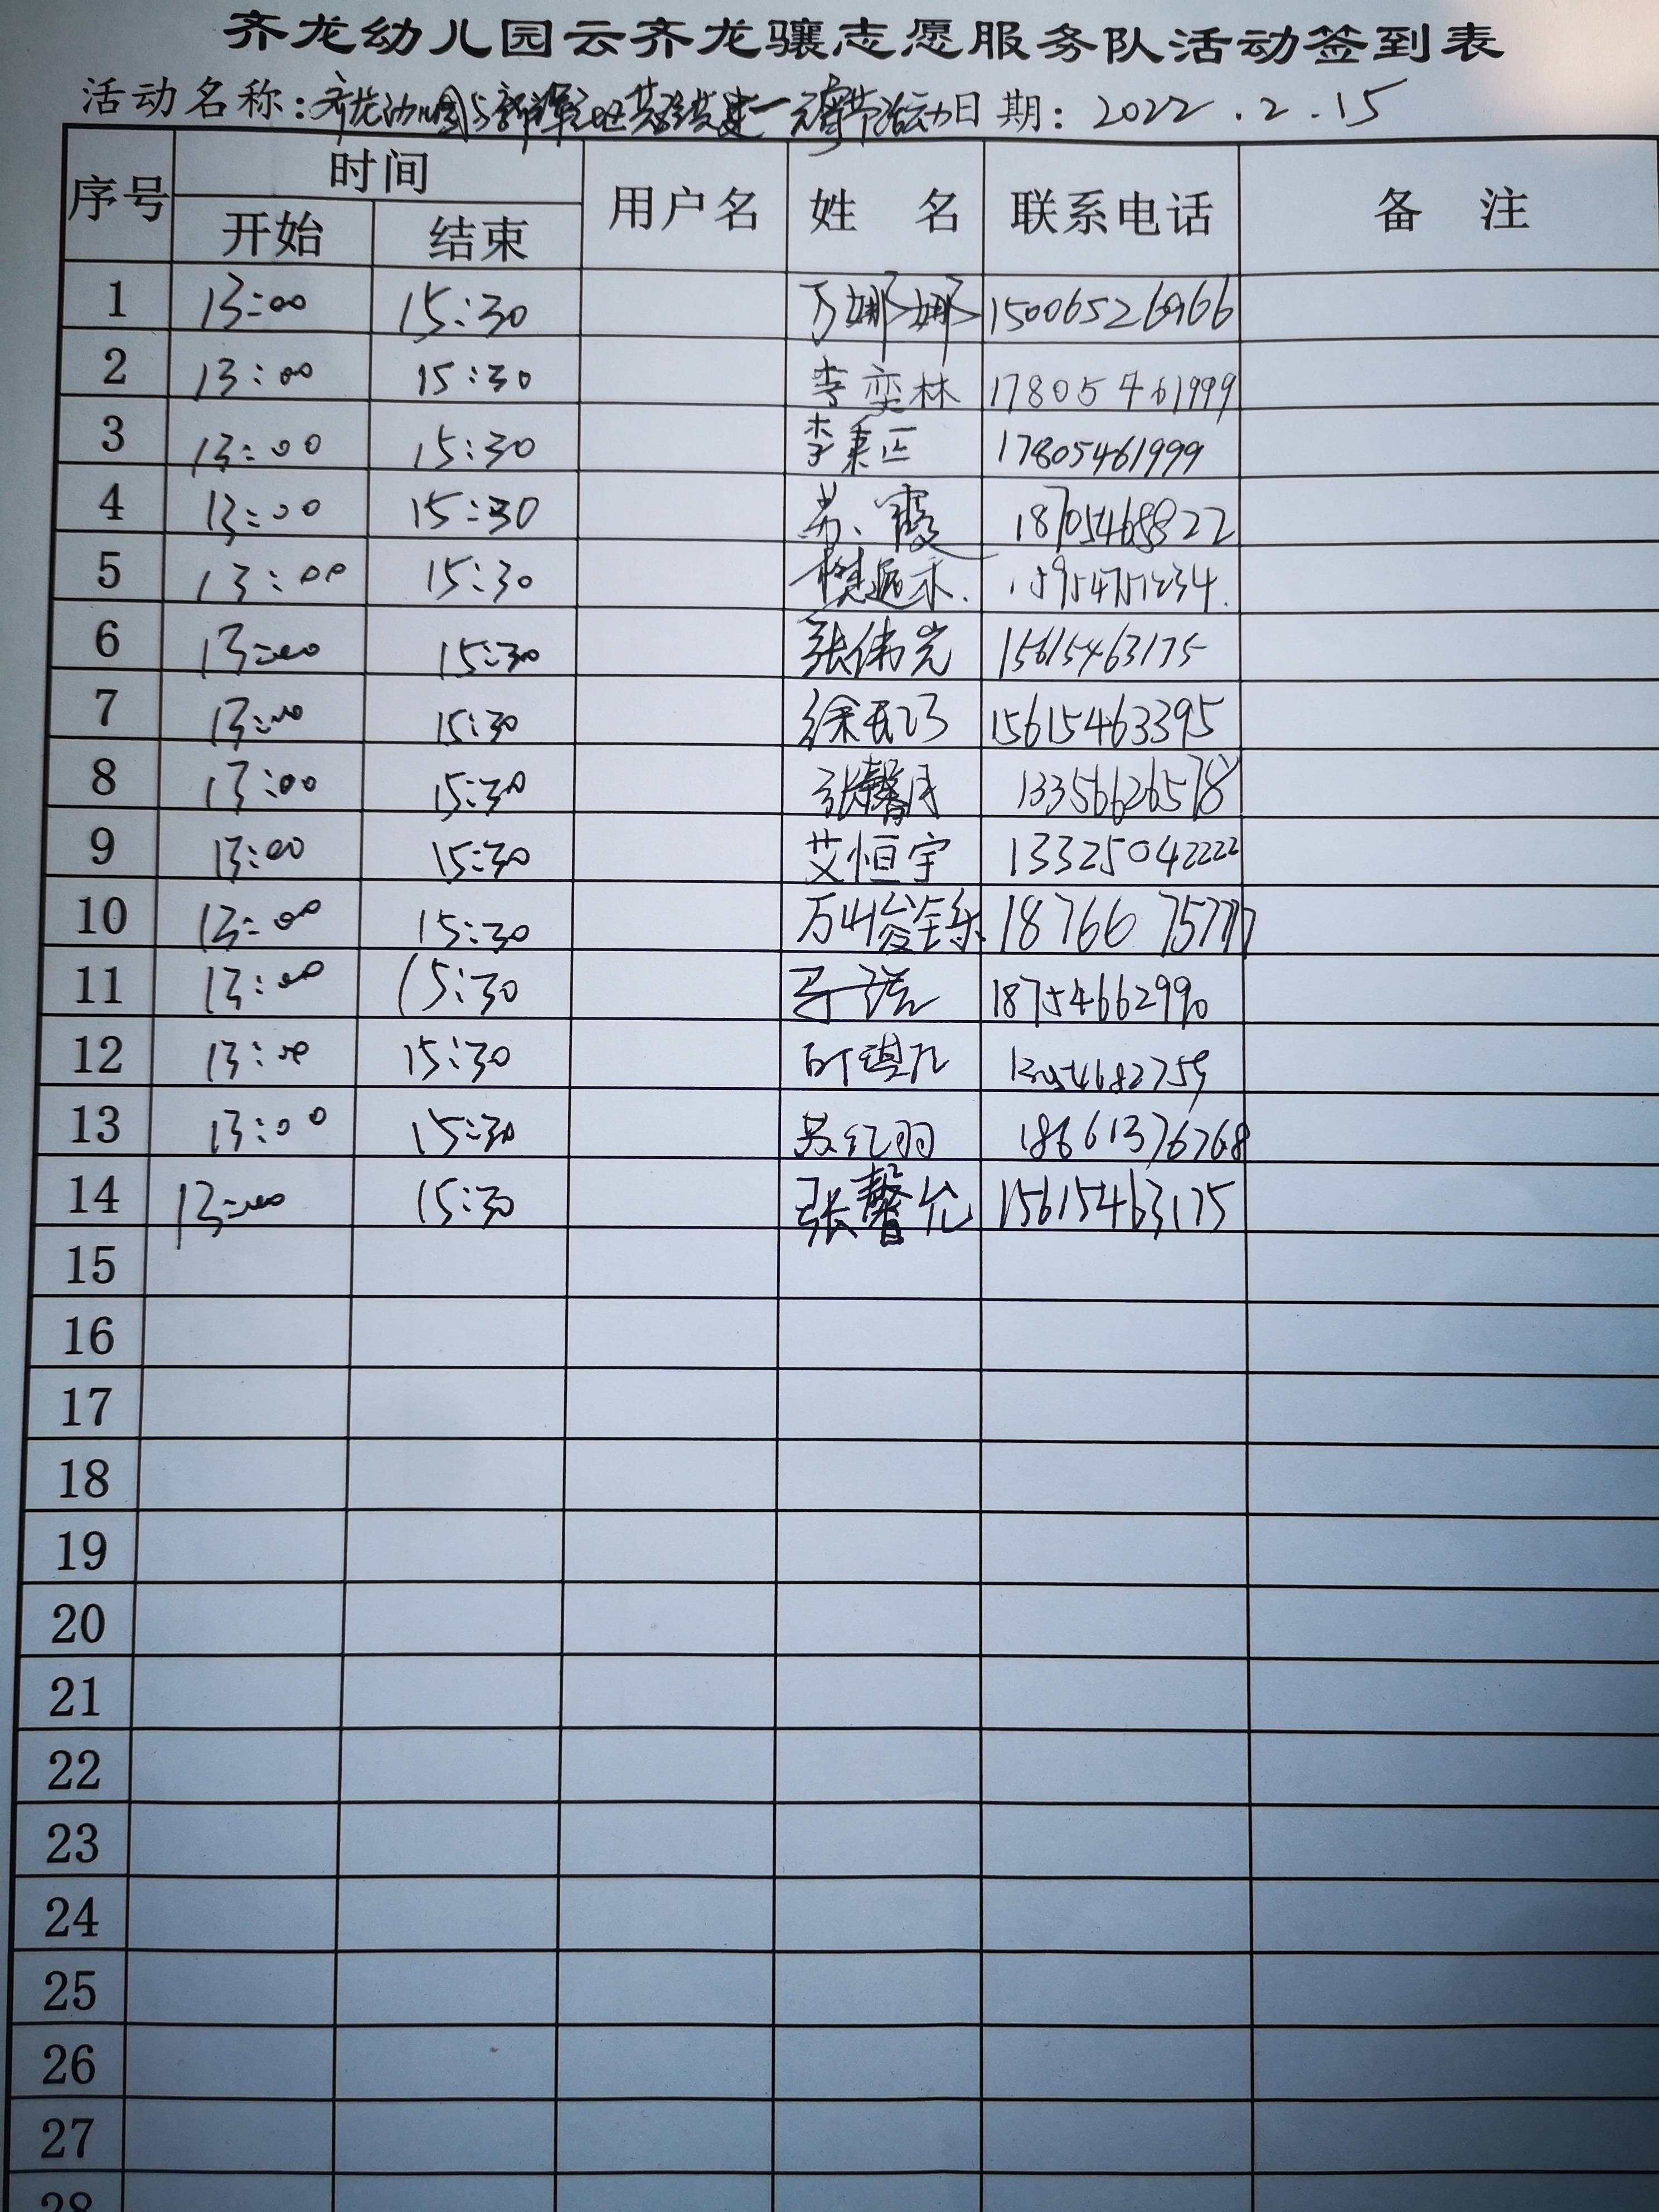 齐龙幼儿园云齐龙骧志愿服务队活动签到表
活动名称：齐龙幼儿园与新 社区 共建一元宵节活动 日期：2022.2.15
序号 时间 用户名 姓 名 联系电话 备 注
开始 结束
1 13:00 15:30 万娜娜
2 13:00 15:30 李奕林 17805461999
3 13:00 15:30 李秉正 17805461999
4 13:00 15:30 苏霞 18705468822
5 13:00 15:30 樊
6 13:00 15:30 张伟光 15615463175
7 13:00 15:30 徐 巧 15615463395
8 13:00 15:30 张馨月 13356626578
9 13:00 15:30 艾恒宇 13325042222
10 13:00 15:30 万 18766 75777
11 13:00 15:30 子诺 18754662990
12 13:00 15:30
13 13:00 15:30 苏红羽 18661376768
14 13:00 15:30 张馨允 15615463175
15
16
17
18
19
20
21
22
23
24
25
26
27
28